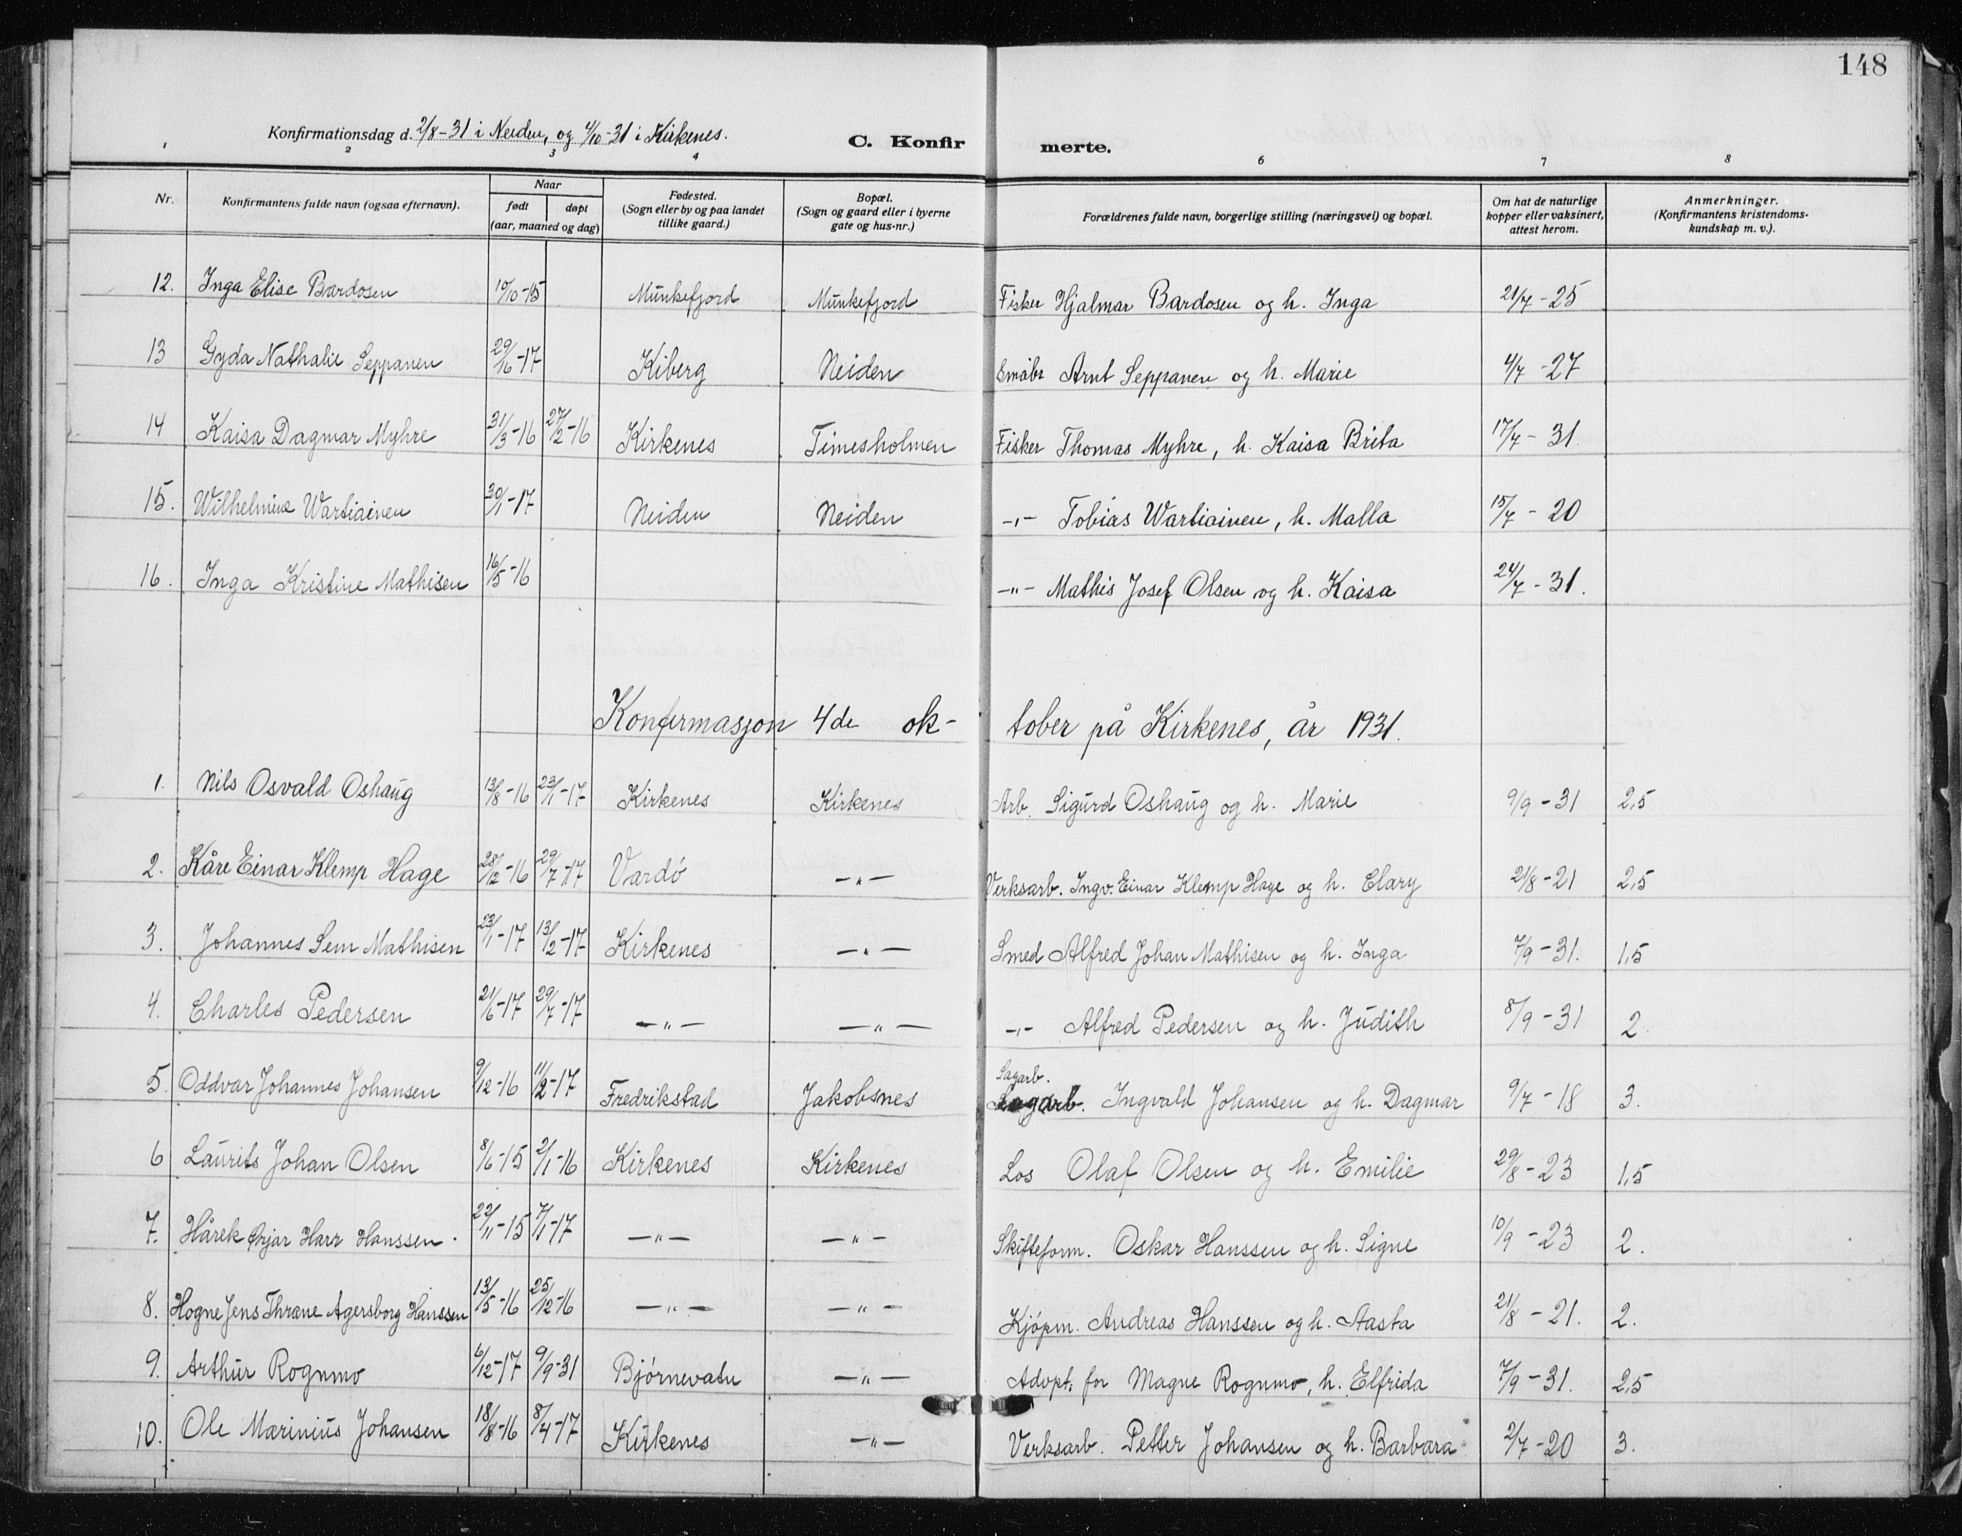 148
Konfirmationsdag d. 2/8-31 i Neiden, og 4/10-31 i Kirkenes. C. Konfirmerte.
1 2 3 4 6 7 8
Nr. Konfirmantens fulde navn (ogsaa efternavn). Naar født døpt (aar, maaned og dag) Fødested. (Sogn eller by og paa landet tillike gaard.) Bopæl. (Sogn og gaard eller i byerne gate og hus-nr.) Forældrenes fulde navn, borgerlige stilling (næringsvei) og bopæl. Om hat de naturlige kopper eller vaksinert, attest herom. Anmerkninger. (Konfirmantens kristendomskundskap m. v.).
12. Inga Elise Bardosen 10/10-15 Munkefjord Munkefjord Fisker Hjalmar Bardosen og h. Inga 21/7-25
13 Gyda Nathalie Seppanen 29/6-17 Kiberg Neiden Småbr Arnt Seppanen og h. Marie 4/7-27
14 Kaisa Dagmar Myhre 31/3-16 27/2-16 Kirkenes Timesholmen Fisker Thomas Myhre, h. Kaisa Brita 17/7-31.
15. Wilhelmine Wartiainen 30/1-17 Neiden Neiden -"- Tobias Wartiainen, h. Malla 15/7-20
16. Inga Kristine Mathisen 16/5-16 -"- Mathis Josef Olsen og h. Kaisa 24/7-31.
Konfirmasjon 4de oktober på Kirkenes, år 1931.
1. Nils Osvald Oshaug 13/8-16 23/1-17 Kirkenes Kirkenes Arb. Sigurd Oshaug og h. Marie 9/9-31 2,5
2. Kåre Einar Klemp Hage 28/12-16 29/7-17 Vardø -"- Verksarb. Ingv. Einar Klemp Hage og h. Clary 21/8-21 2,5
3. Johannes Sem Mathisen 23/1-17 13/2-17 Kirkenes -"- Smed Alfred Johan Mathisen og h. Inga 7/9-31. 1,5
4. Charles Pedersen 21/6-17 29/7-17 -"- -"- -"- Alfred Pedersen og h. Judith 8/9-31 2
5. Oddvar Johannes Johansen 9/12-16 11/2-17 Fredrikstad Jakobsnes Sagarb. Ingvald Johansen og h. Dagmar 9/7-18 3.
6 Laurits Johan Olsen 8/6-15 2/1-16 Kirkenes Kirkenes Los Olaf Olsen og h. Emilie 29/8-23 1,5
7. Hårek Harr Hanssen. 22/11-15 7/1-17 -"- -"- Skifteform. Oskar Hanssen og h. Signe 10/9-23 2.
8. Hogne Jens Thrane Agersborg Hanssen 13/5-16 25/12-16 -"- -"- Kjøpm. Andreas Hanssen og h. Aasta 21/8-21. 2.
9. Arthur Rognmo 6/12-17 9/9-31 Bjørnevatn -"- Adopt. for Magne Rognmo, h. Elfrida 7/9-31. 2,5
10. Ole Marinius Johansen 18/8-16 8/4-17 Kirkenes -"- Verksarb. Petter Johansen og h. Barbara 2/7-20 3.